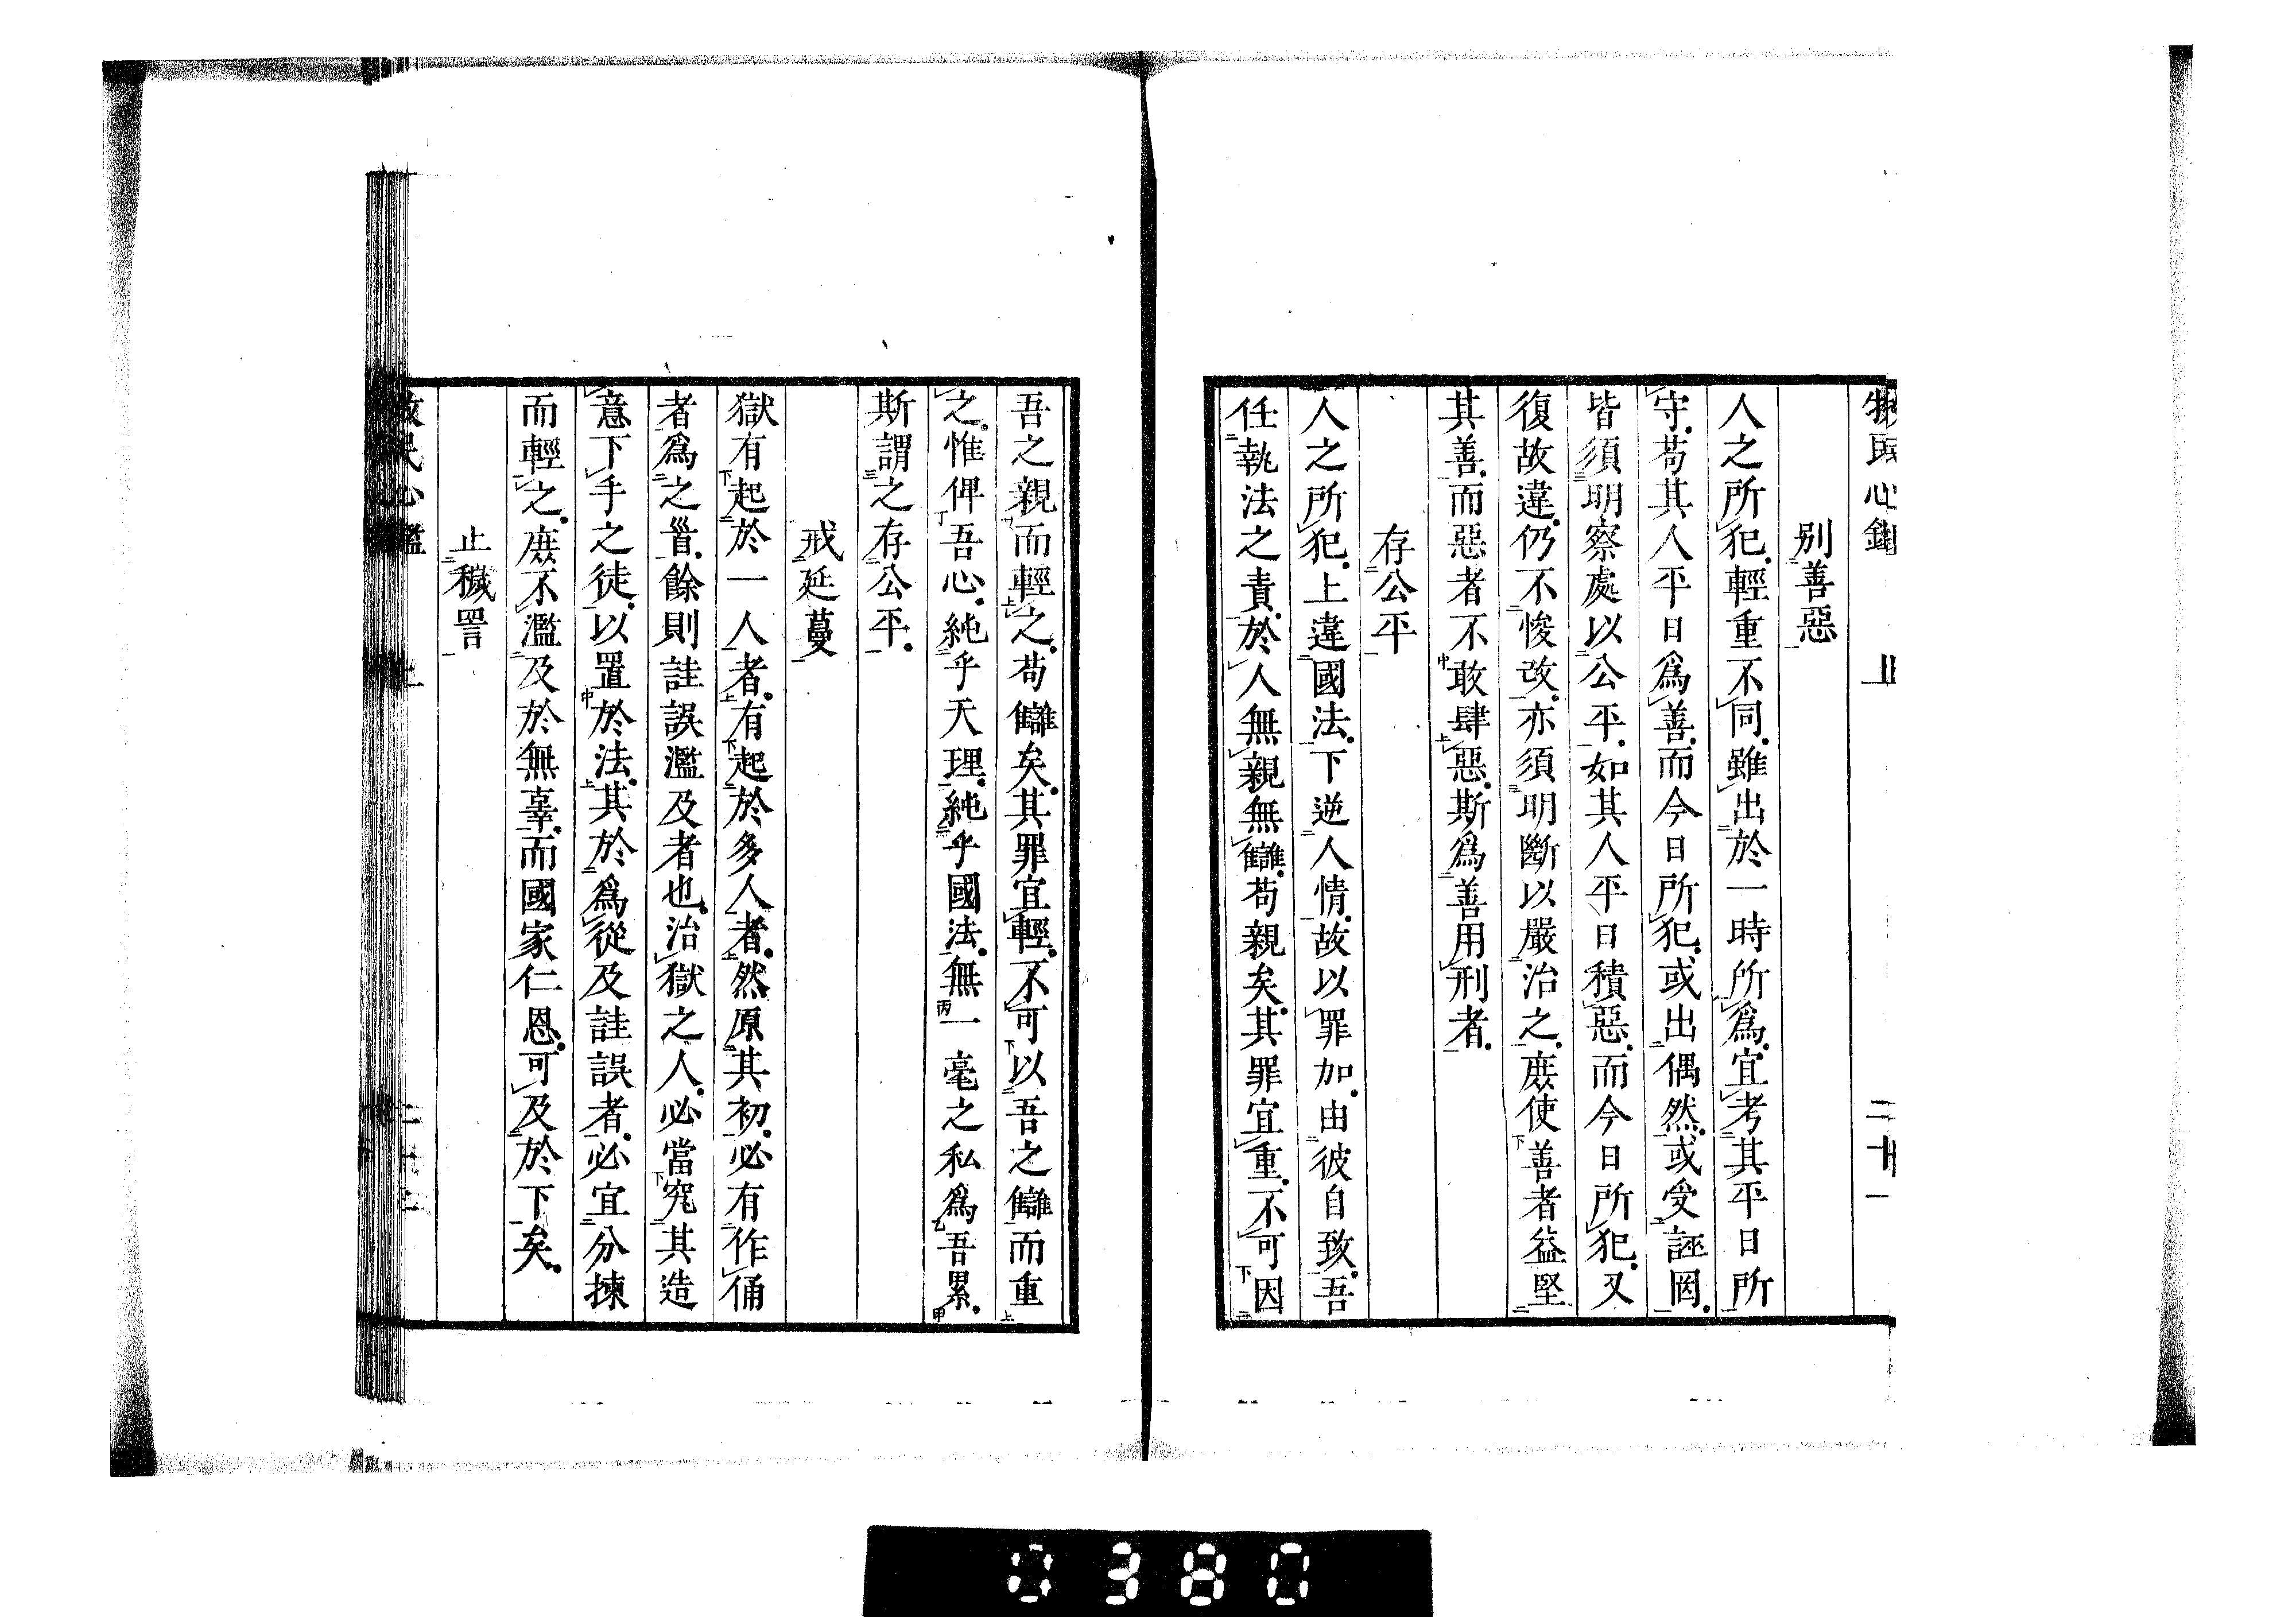 牧民心鑑 上 二十一
別善惡
人之所犯輕重不同雖出於一時所爲宜考其平日所
守苟其人平日爲善而今日所犯或出偶然或受誣罔
皆須明察處以公平如其人平日積惡而今日所犯又
復故違仍不悛改亦須明斷以嚴治之庶使善者益堅
其善而惡者不敢肆惡斯爲善用刑者
存公平
人之所犯上違國法下逆人情故以罪加由彼自致吾
任執法之責於人無親無讎苟親矣其罪宜重不可因
吾之親而輕之苟讎矣其罪宜輕不可以吾之讎而重
之惟俾吾心純乎天理純乎國法無一毫之私爲吾累
斯謂之存公平
戒延蔓
獄有起於一人者有起於多人者然原其初必有作俑
者爲之首餘則詿誤濫及者也治獄之人必當究其造
意下手之徒以置於法其於爲從及詿誤者必宜分揀
而輕之庶不濫及於無辜而國家仁恩可及於下矣
止穢詈
牧民心鑑 上
0380